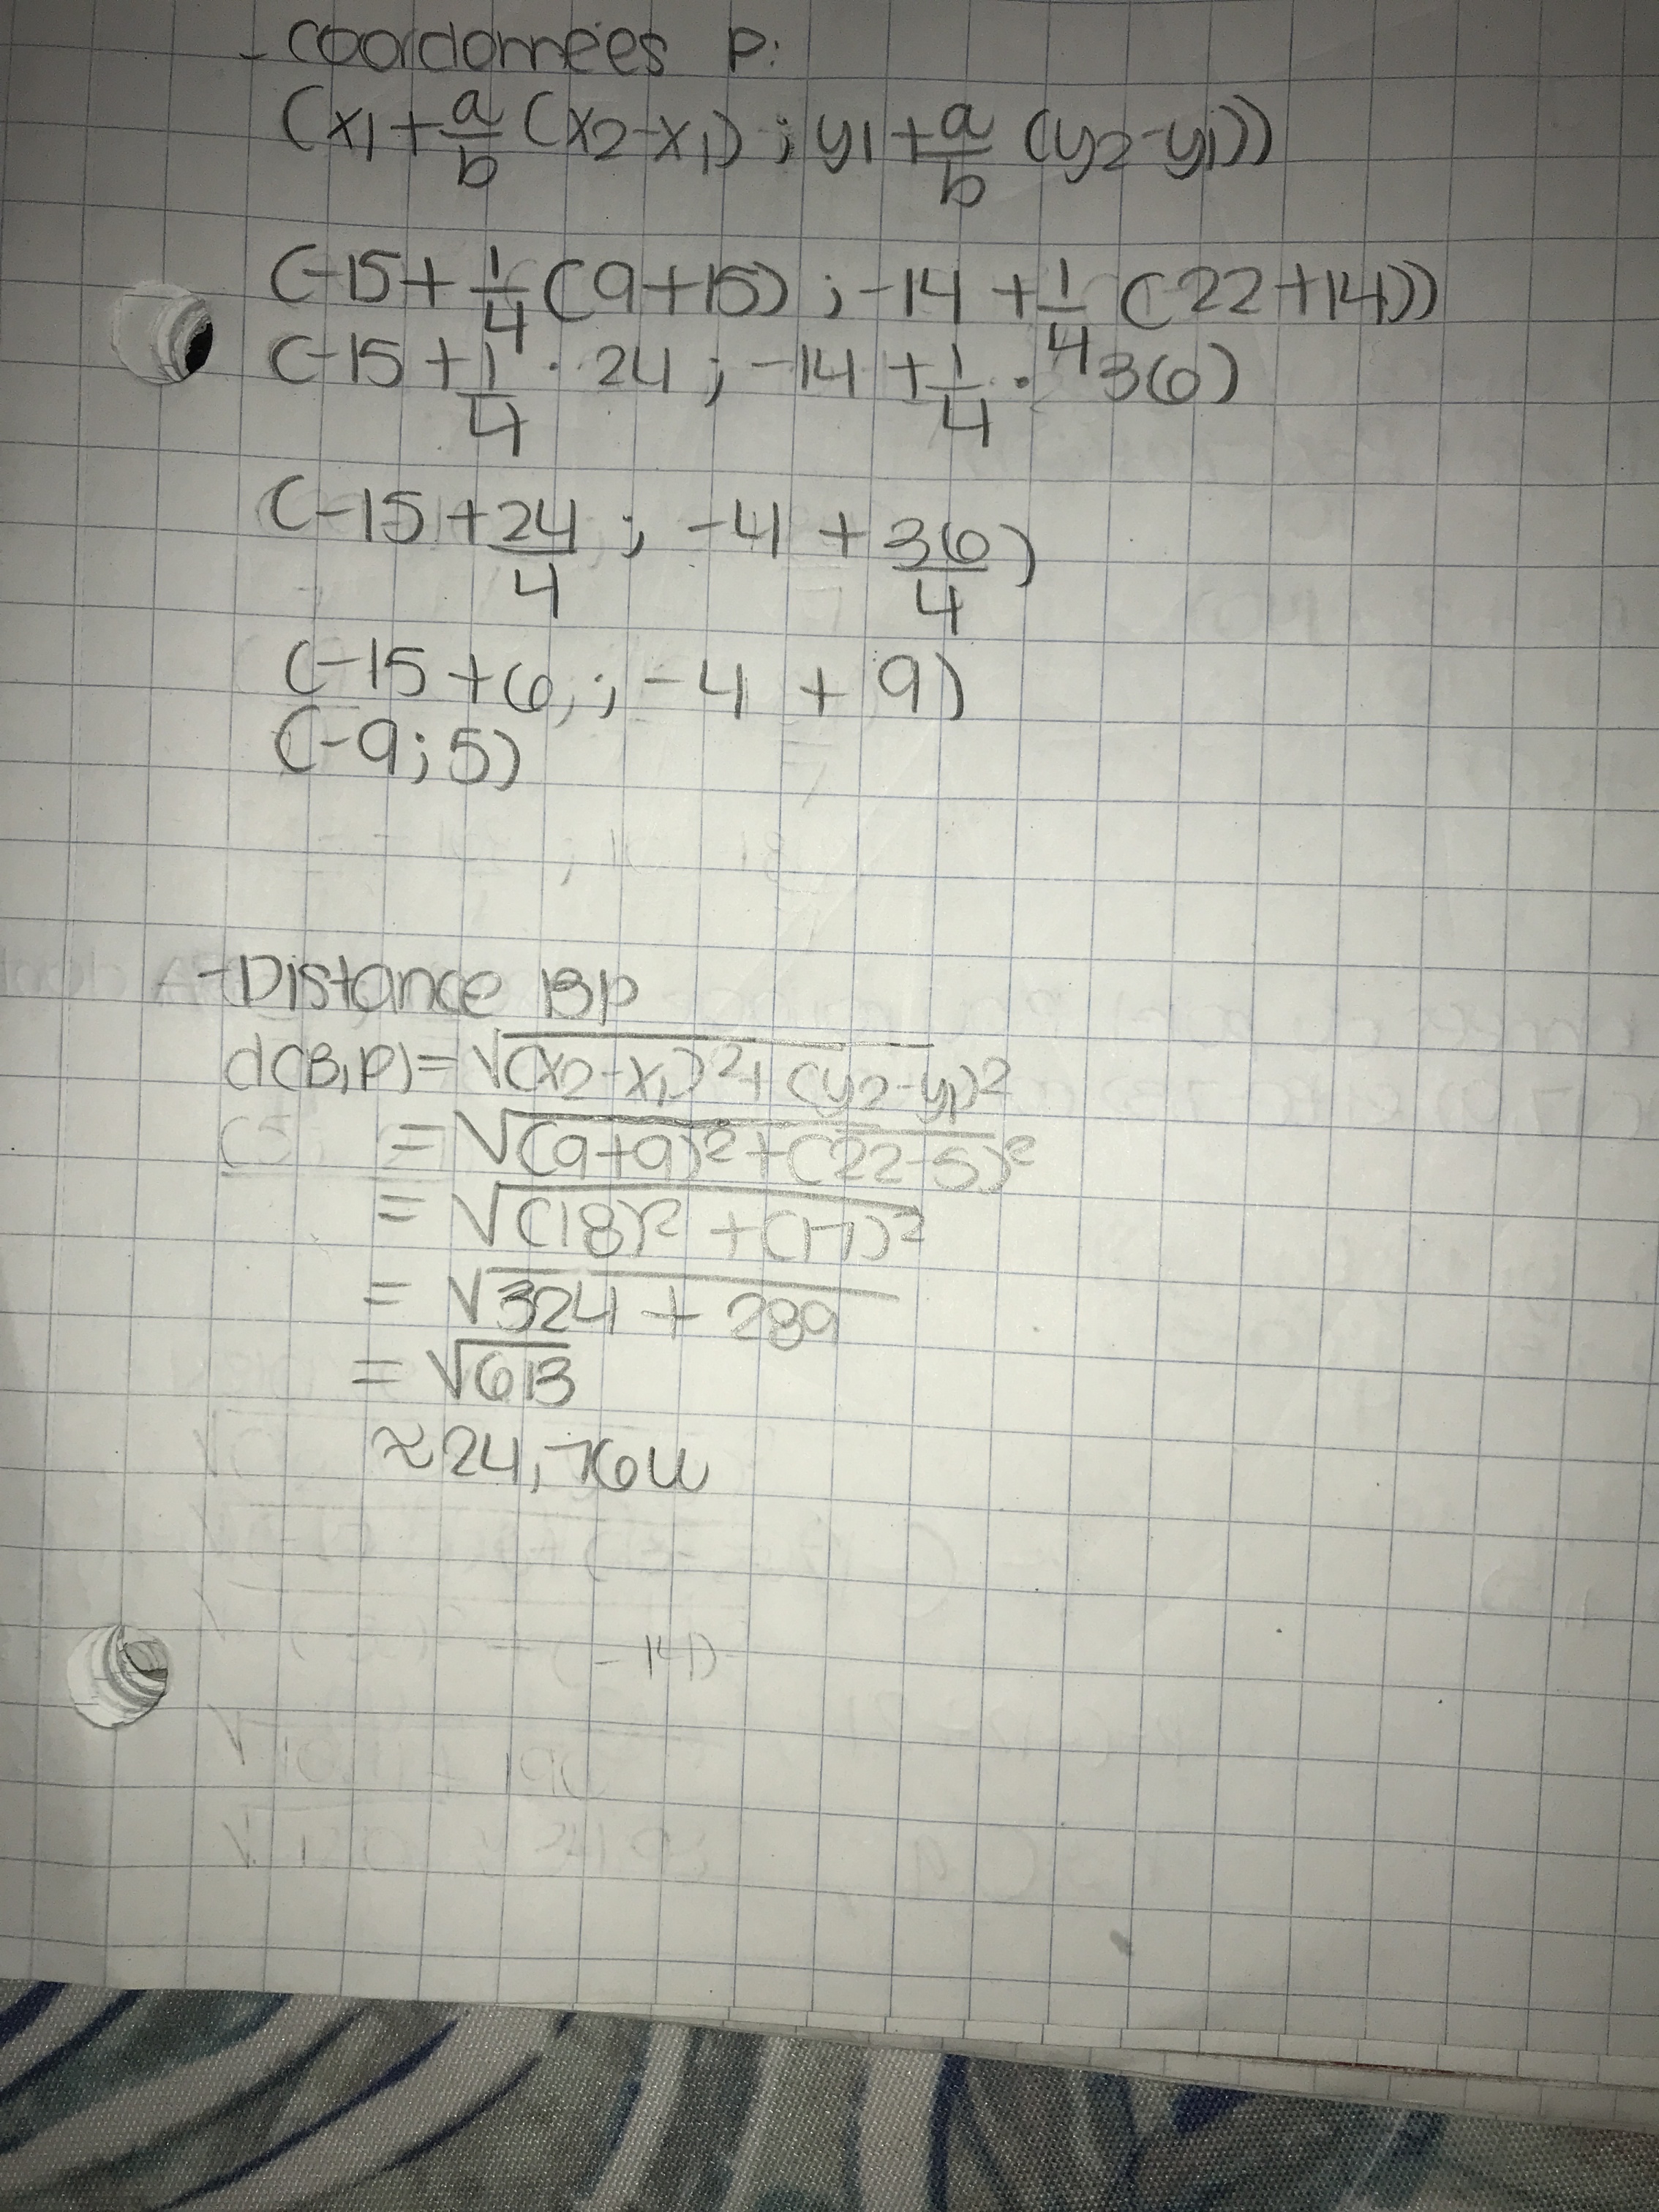 - Coordonnées P:
(x1 + a/b (x2 - x1) ; y1 + a/b (y2 - y1))
(-15 + 1/4 (9 + 15) ; -14 + 1/4 (22 + 14))
(-15 + 1/4 · 24 ; -14 + 1/4 · 36)
(-15 + 24/4 ; -4 + 36/4)
(-15 + 6 ; -4 + 9)
(-9 ; 5)
- Distance BP
d(B,P) = √(x2 - x1)² + (y2 - y1)²
(5 = √(9 + 9)² + (22 - 5)²
= √(18)² + (17)²
= √324 + 289
= √613
≈ 24,76 u